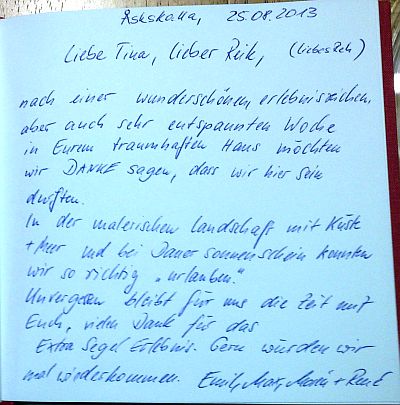 Askskälla, 25.08.2013
Liebe Tina, lieber Reik, (liebes Reh)
nach einer wunderschönen, erlebnisreichen,
aber auch sehr entspannten Woche
in Eurem traumhaften Haus möchten
wir DANKE sagen, dass wir hier sein
durften.
In der malerischen Landschaft mit Küste
+ Meer und bei Dauersonnenschein konnten
wir so richtig „urlauben."
Unvergessen bleibt für uns die Zeit mit
Euch, vielen Dank für das
Extra Segel Erlebnis. Gern würden wir
mal wiederkommen. Emily, Max, + René